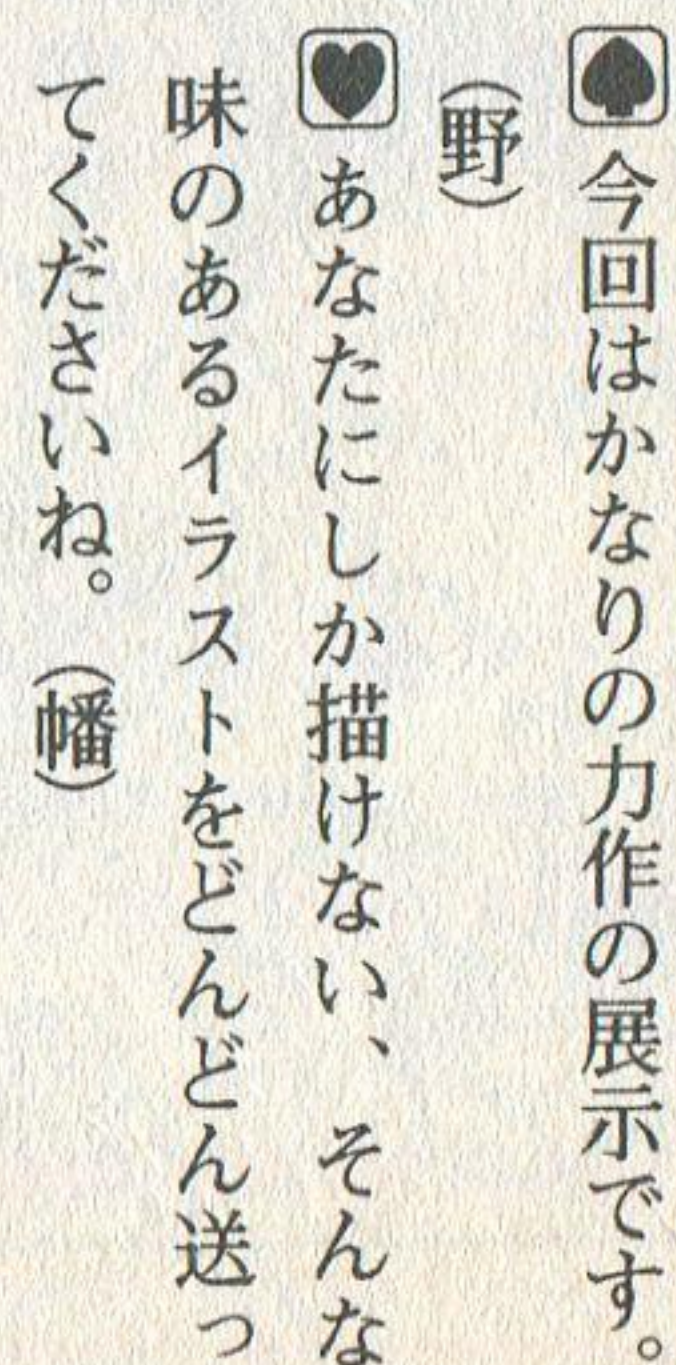 ♠今回はかなりの力作の展示です。
(野)
♥あなたにしか描けない、そんな
味のあるイラストをどんどん送っ
てくださいね。(幡)